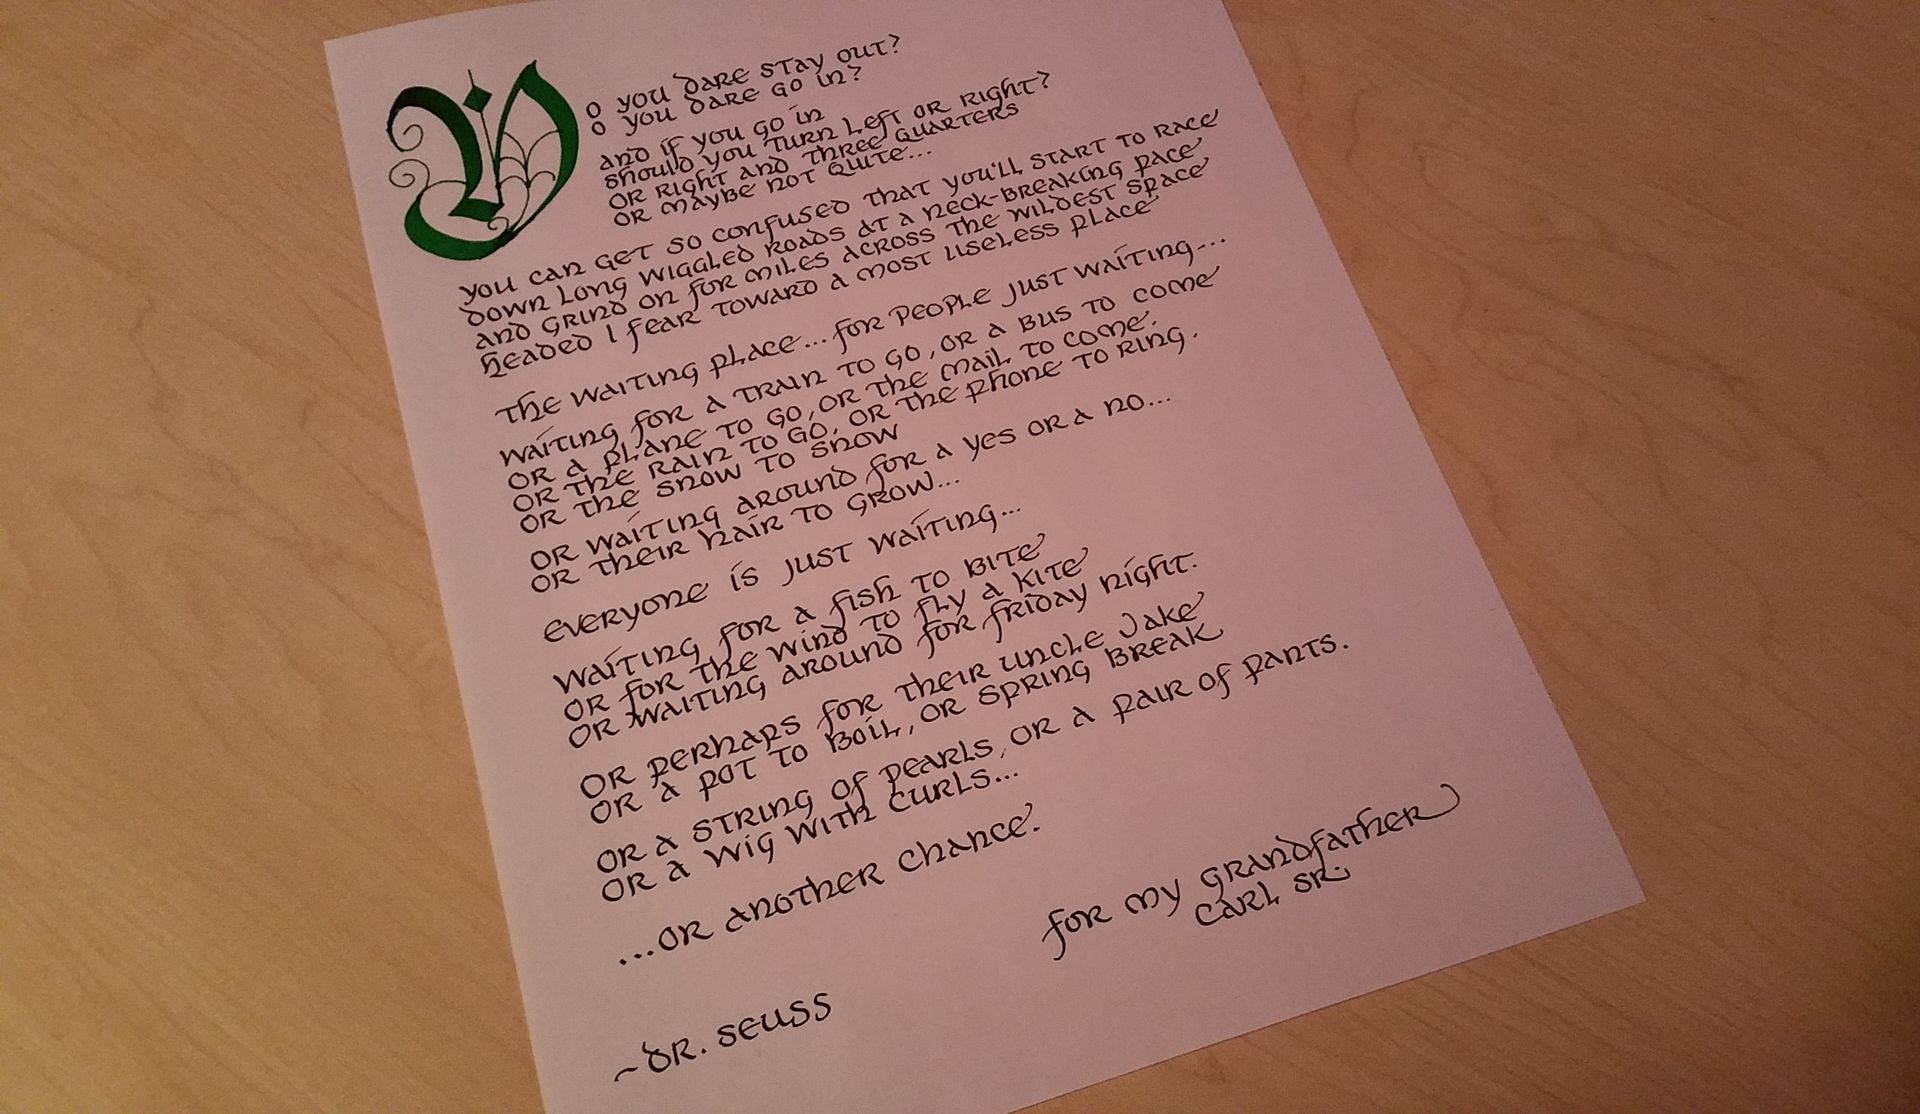 Do you dare stay out?
o you dare go in?
and if you go in
should you turn left or right?
or right and three quarters
or maybe not quite...
you can get so confused that you'll start to race
down long wiggled roads at a neck-breaking pace
and grind on for miles across the wildest space
headed I fear toward a most useless place
the waiting place...for people just waiting...
waiting for a train to go, or a bus to come
or a plane to go, or the mail to come.
or the rain to go, or the phone to ring.
or the snow to snow
or waiting around for a yes or a no...
or their hair to grow...
everyone is just waiting...
waiting for a fish to bite
or for the wind to fly a kite
or waiting around for friday night.
or perhaps for their uncle Jake
or a pot to boil, or spring break
or a string of pearls, or a pair of pants.
or a wig with curls...
...or another chance.
for my grandfather
Carl Sr.
~Dr. Seuss